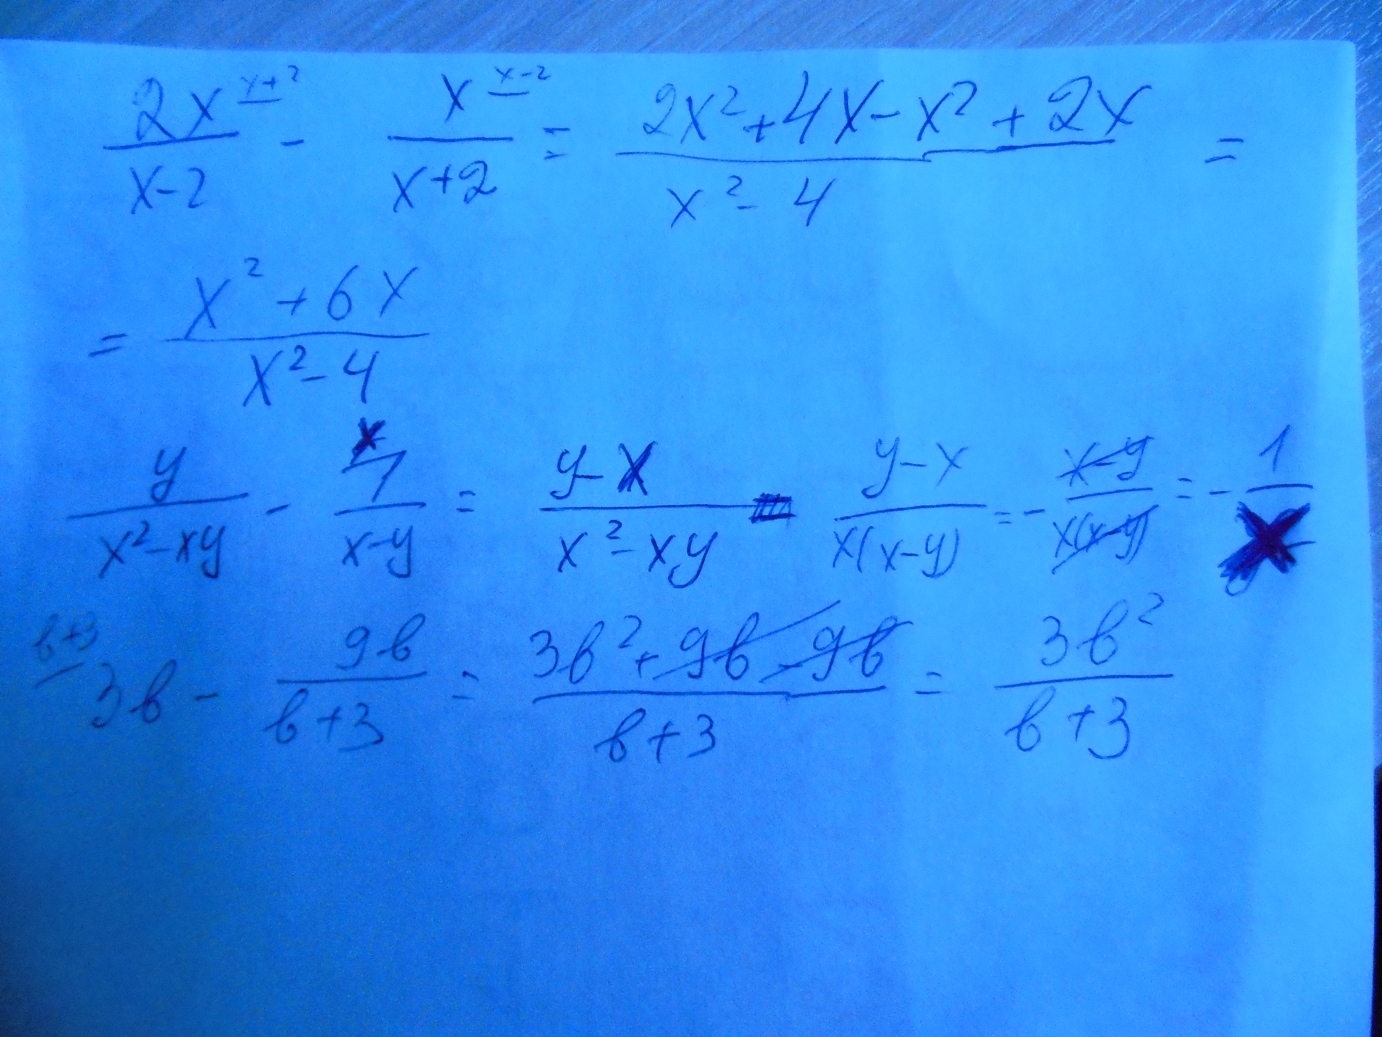 2x^(x+2)/(x-2) - x^(x-2)/(x+2) = (2x²+4x-x²+2x)/(x²-4) =
= (x²+6x)/(x²-4)
y/(x²-xy) - 1^x/(x-y) = (y-x)/(x²-xy) = (y-x)/(x(x-y)) = -(x-y)/(x(x-y)) = -1/x
^(b+3) 3b - 9b/(b+3) = (3b²+9b-9b)/(b+3) = 3b²/(b+3)